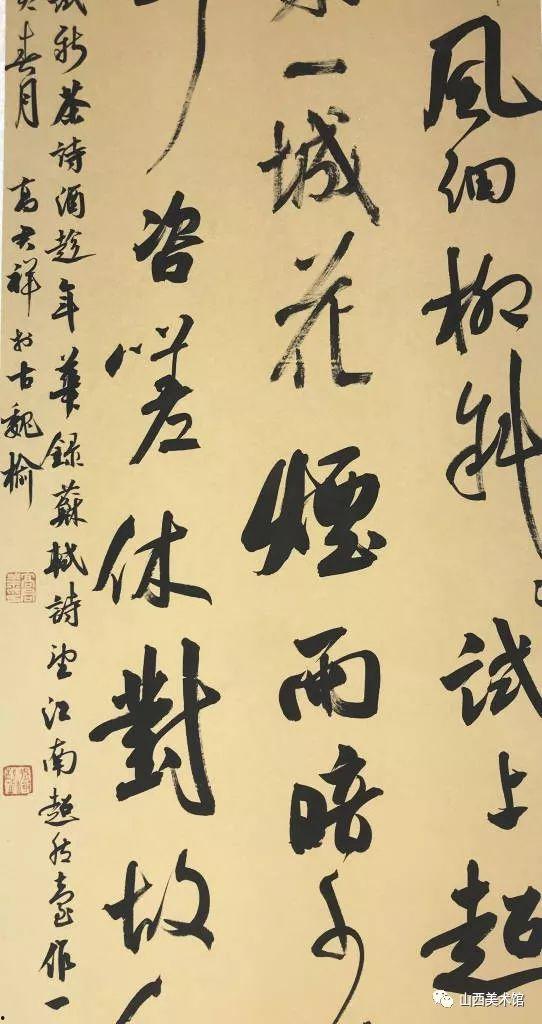 風細柳斜試上超
一城花煙雨暗千
咨嗟休對故
試新茶詩酒趁年華錄蘇軾詩望江南超然臺作一
春月 高祥於古魏榆
山西美术馆